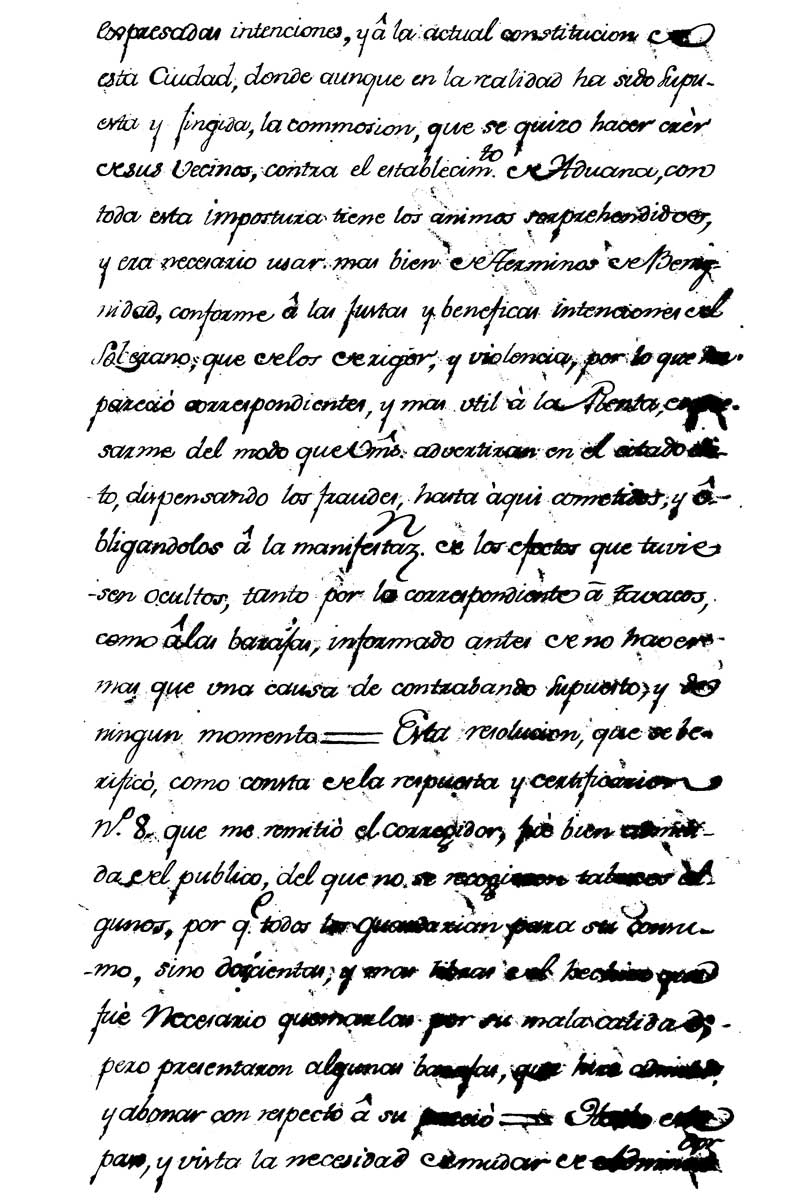 expresadas intenciones, y â la actual constitucion de
esta Ciudad, donde aunque en la realidad ha sido supu-
esta y fingida, la commosion, que se quizo hacer crèr
de sus Vecinos, contra el establecim.to de Aduana, con
toda esta impostura tiene los animos sorprehendidos,
y era necesario usar mas bien de Terminos de Benig-
nidad, conforme â las Justas y beneficas intenciones del
Soberano, que de los de rigor, y violencia, por lo que me
pareciò correspondientes, y mas util à la Renta, expre-
sarme del modo que Vms. advertiran en el citado èdi-
to, dispensando los fraudes, hasta àqui cometidos, y ô-
bligandolos â la manifestaz.n de los efectos que tuvie
-sen ocultos, tanto por lo correspondiente a Tavacos,
como â las barajas, informado antes de no haver
mas que una causa de contrabando supuesto, y de
ningun momento = Esta resolucion, que se be-
rificò, como consta de la respuesta y certificacion
N.º 8. que me remitiò el Corregidor, fuè bien admiti-
da del publico, del que no se recogieron tabacos àl-
gunos, por q.e todos los guardarian para su consu-
-mo, sino doscientas, y mas libras del hechizo que
fuè Necesario quemarlas por su mala calidad;
pero presentaron algunas barajas, que hice admitir,
y abonar con respecto â su precio = Hecho esto
paso, y vista la necesidad de mudar de Administrador